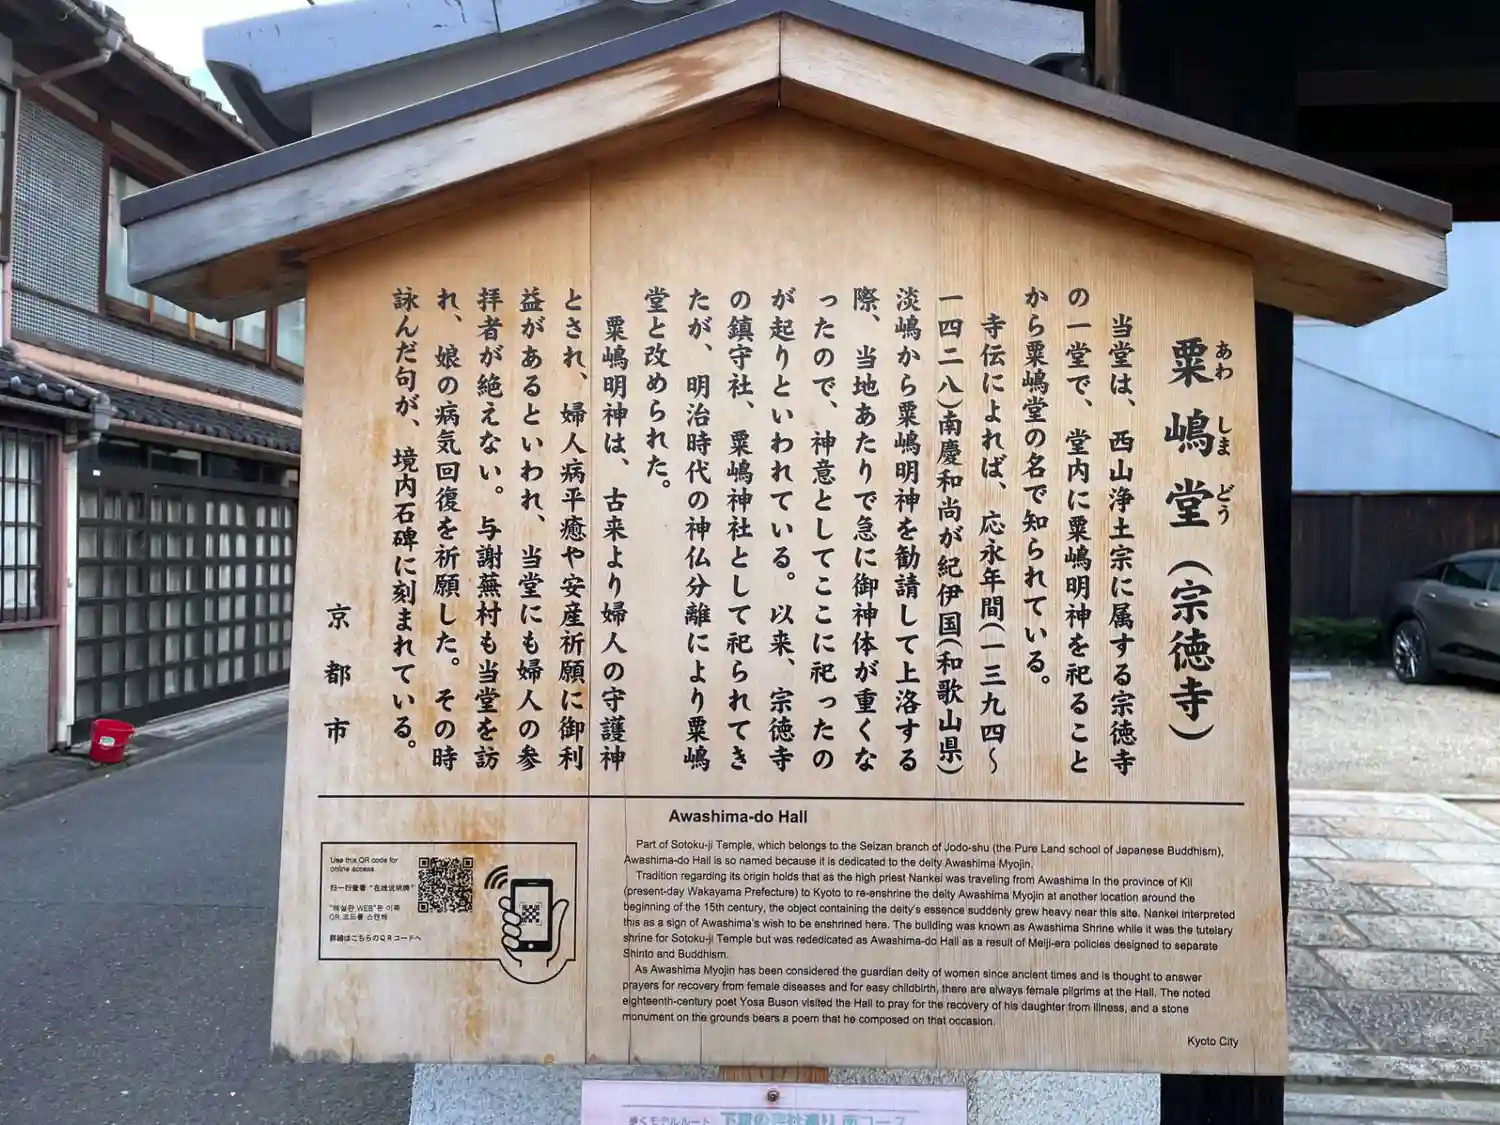 粟嶋堂（宗徳寺）
あわ しま どう
当堂は、西山浄土宗に属する宗徳寺
の一堂で、堂内に粟嶋明神を祀ること
から粟嶋堂の名で知られている。
寺伝によれば、応永年間（一三九四～
一四二八）南慶和尚が紀伊国（和歌山県）
淡嶋から粟嶋明神を勧請して上洛する
際、当地あたりで急に御神体が重くな
ったので、神意としてここに祀ったの
が起りといわれている。以来、宗徳寺
の鎮守社、粟嶋神社として祀られてき
たが、明治時代の神仏分離により粟嶋
堂と改められた。
粟嶋明神は、古来より婦人の守護神
とされ、婦人病平癒や安産祈願に御利
益があるといわれ、当堂にも婦人の参
拝者が絶えない。与謝蕪村も当堂を訪
れ、娘の病気回復を祈願した。その時
詠んだ句が、境内石碑に刻まれている。
京都市
Awashima-do Hall
Part of Sotoku-ji Temple, which belongs to the Seizan branch of Jodo-shu (the Pure Land school of Japanese Buddhism),
Awashima-do Hall is so named because it is dedicated to the deity Awashima Myojin.
Tradition regarding its origin holds that as the high priest Nankei was traveling from Awashima in the province of Kii
(present-day Wakayama Prefecture) to Kyoto to re-enshrine the deity Awashima Myojin at another location around the
beginning of the 15th century, the object containing the deity's essence suddenly grew heavy near this site. Nankei interpreted
this as a sign of Awashima's wish to be enshrined here. The building was known as Awashima Shrine while it was the tutelary
shrine for Sotoku-ji Temple but was rededicated as Awashima-do Hall as a result of Meiji-era policies designed to separate
Shinto and Buddhism.
As Awashima Myojin has been considered the guardian deity of women since ancient times and is thought to answer
prayers for recovery from female diseases and for easy childbirth, there are always female pilgrims at the Hall. The noted
eighteenth-century poet Yosa Buson visited the Hall to pray for the recovery of his daughter from illness, and a stone
monument on the grounds bears a poem that he composed on that occasion.
Kyoto City
Use this QR code for
online access
扫一扫查看"在线说明牌"
"해설판 WEB"은 이쪽
QR 코드를 스캔해
詳細はこちらのQRコードへ
歩くモデルルート